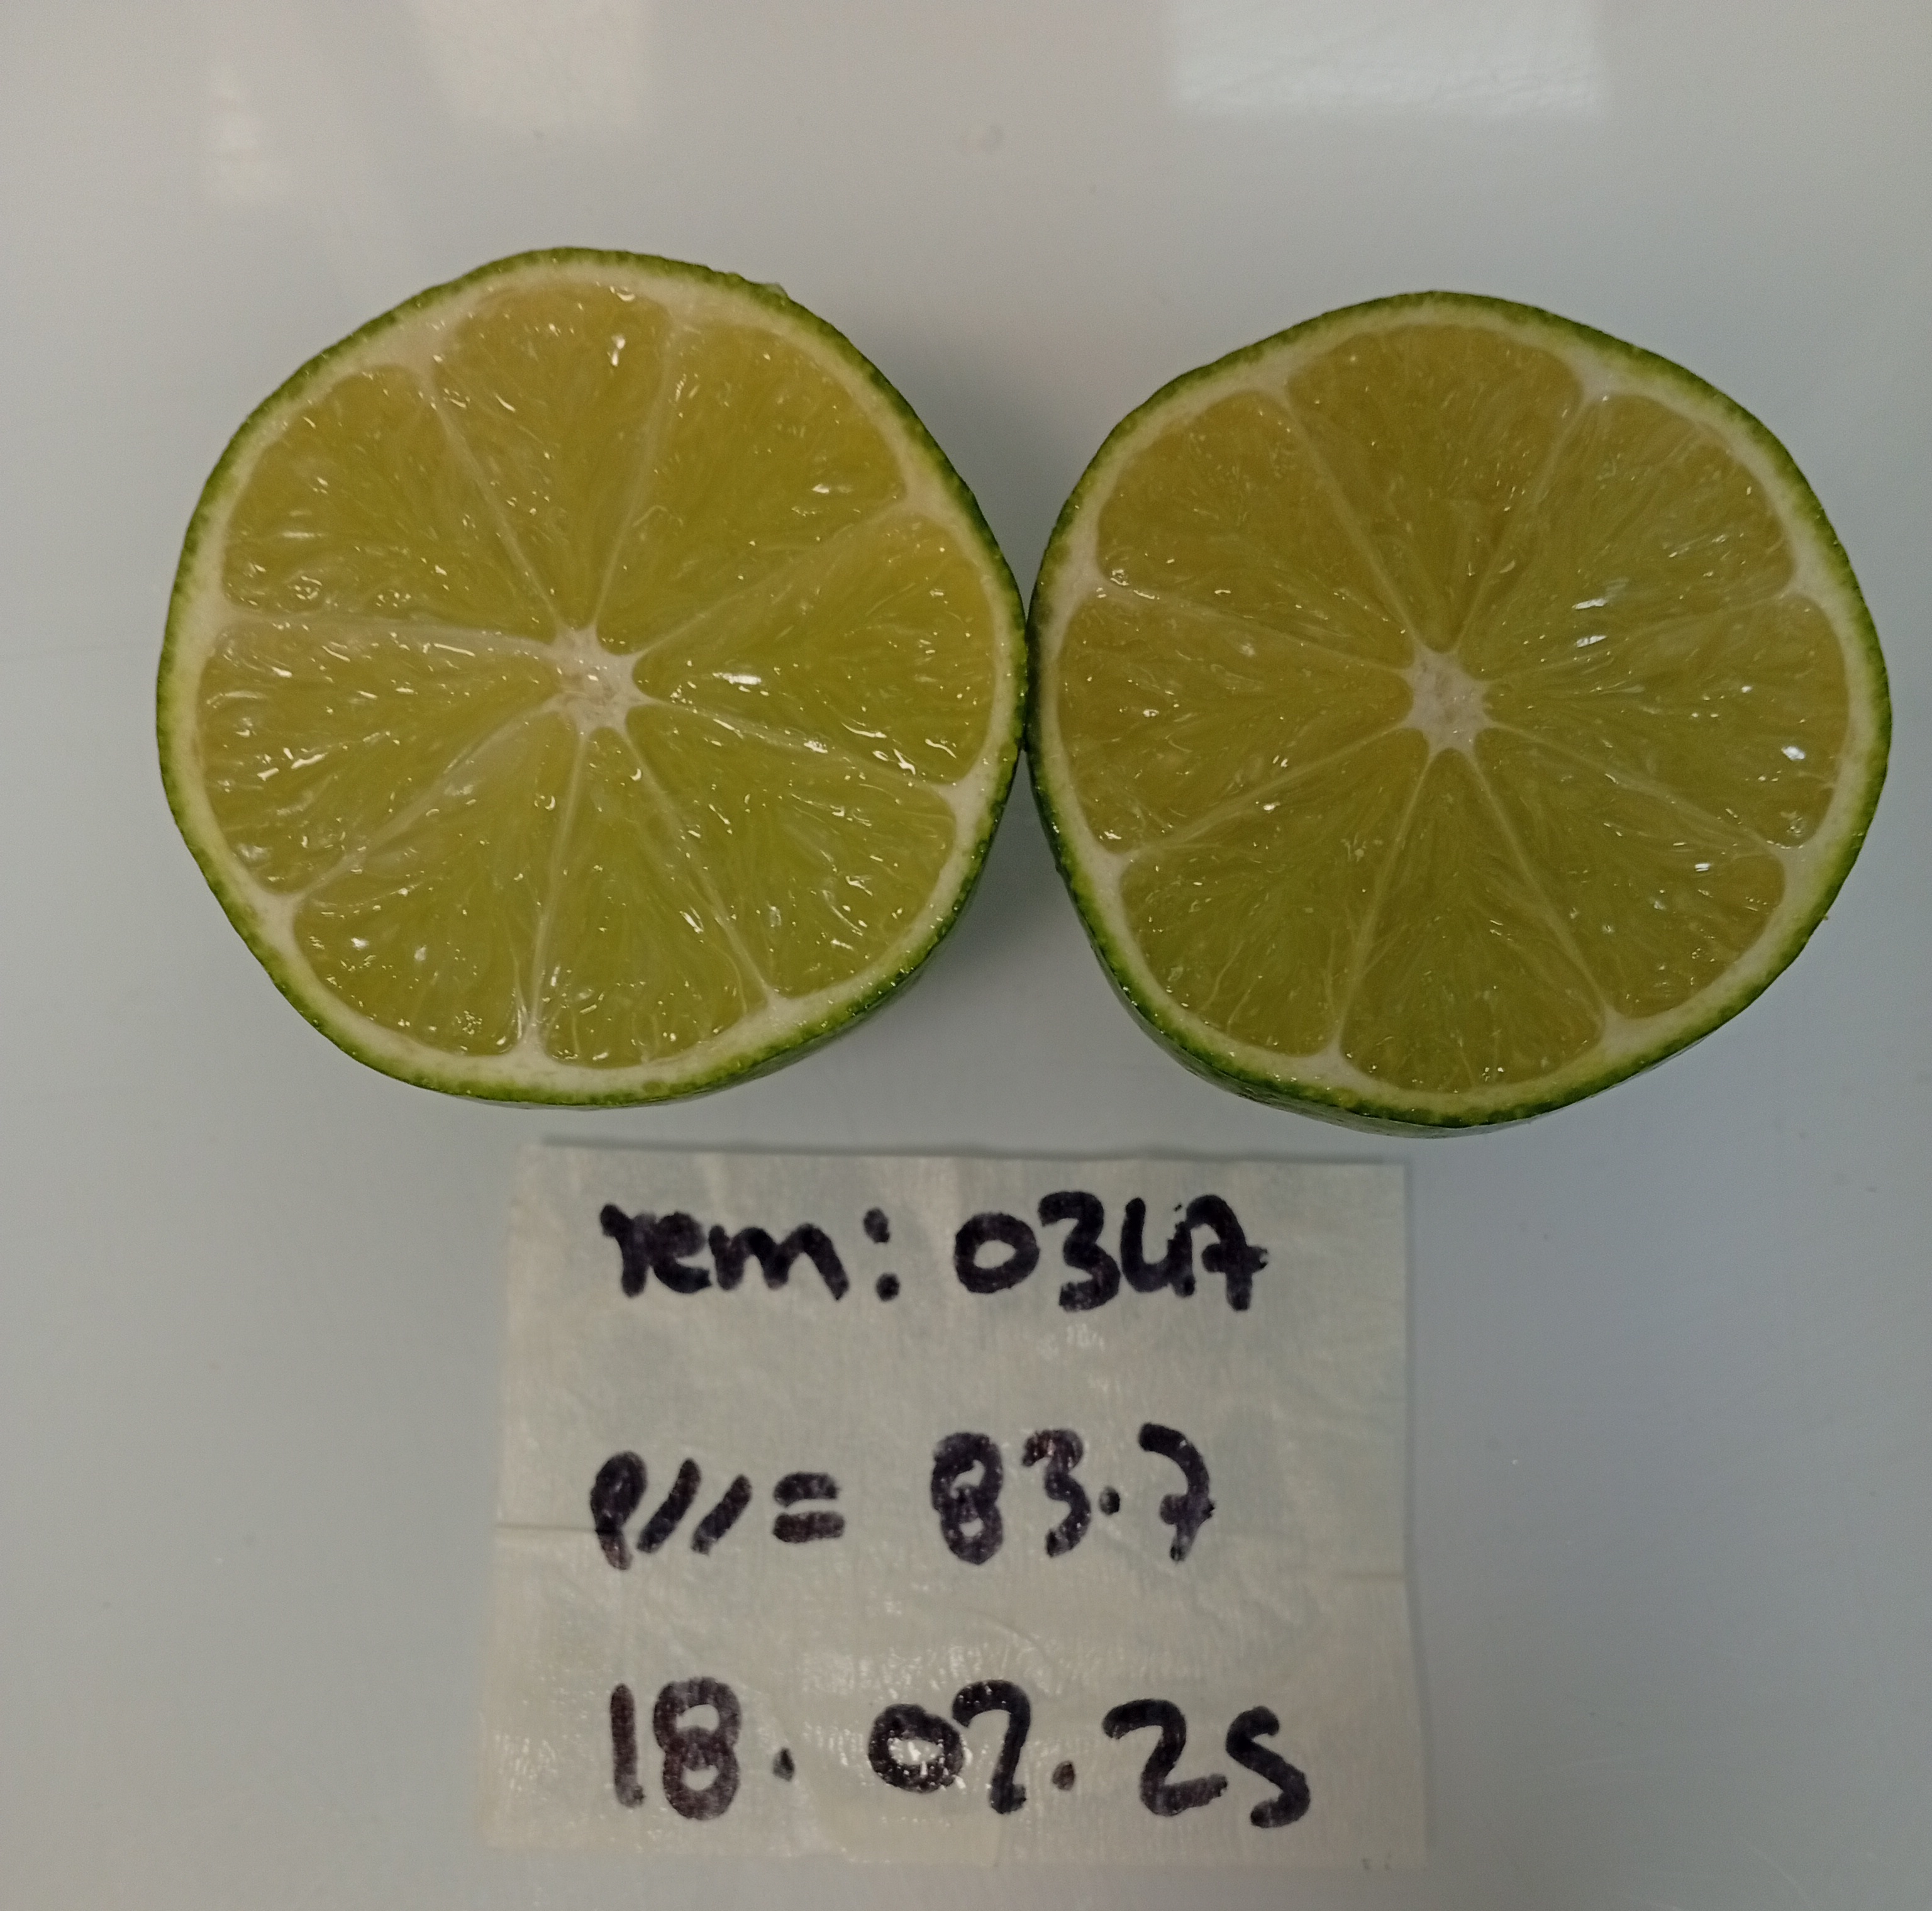 rem: 0347
P// = 83.7
18.07.25